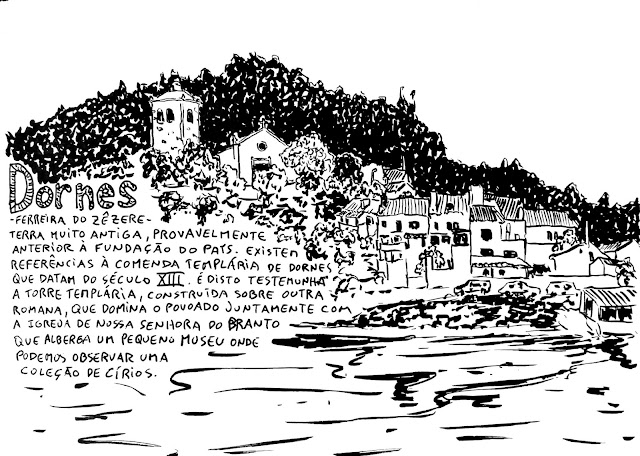 Dornes
-FERREIRA DO ZÊZERE-
TERRA MUITO ANTIGA, PROVAVELMENTE
ANTERIOR À FUNDAÇÃO DO PAÍS. EXISTEM
REFERÊNCIAS À COMENDA TEMPLÁRIA DE DORNES
QUE DATAM DO SÉCULO XIII. É DISTO TESTEMUNHA
A TORRE TEMPLÁRIA, CONSTRUÍDA SOBRE OUTRA
ROMANA, QUE DOMINA O POVOADO JUNTAMENTE COM
A IGREJA DE NOSSA SENHORA DO BRANTO
QUE ALBERGA UM PEQUENO MUSEU ONDE
PODEMOS OBSERVAR UMA
COLEÇÃO DE CÍRIOS.